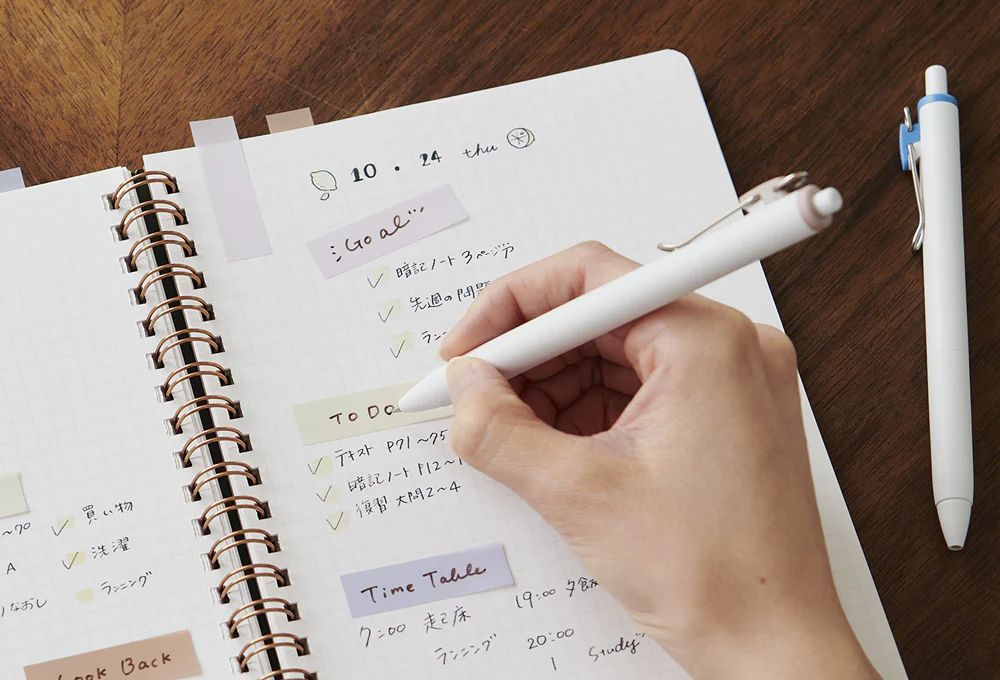 ~70
A
りなおし
買い物
洗濯
ランニング
Look Back
10・24 thu
Goal
暗記ノート 3ページ
先週の問題
ラン
TO DO
テキスト P71~75
暗記ノート P12~
復習 大問2~4
Time Table
7:00 起床
ランニング
19:00 夕飯
20:00
Study